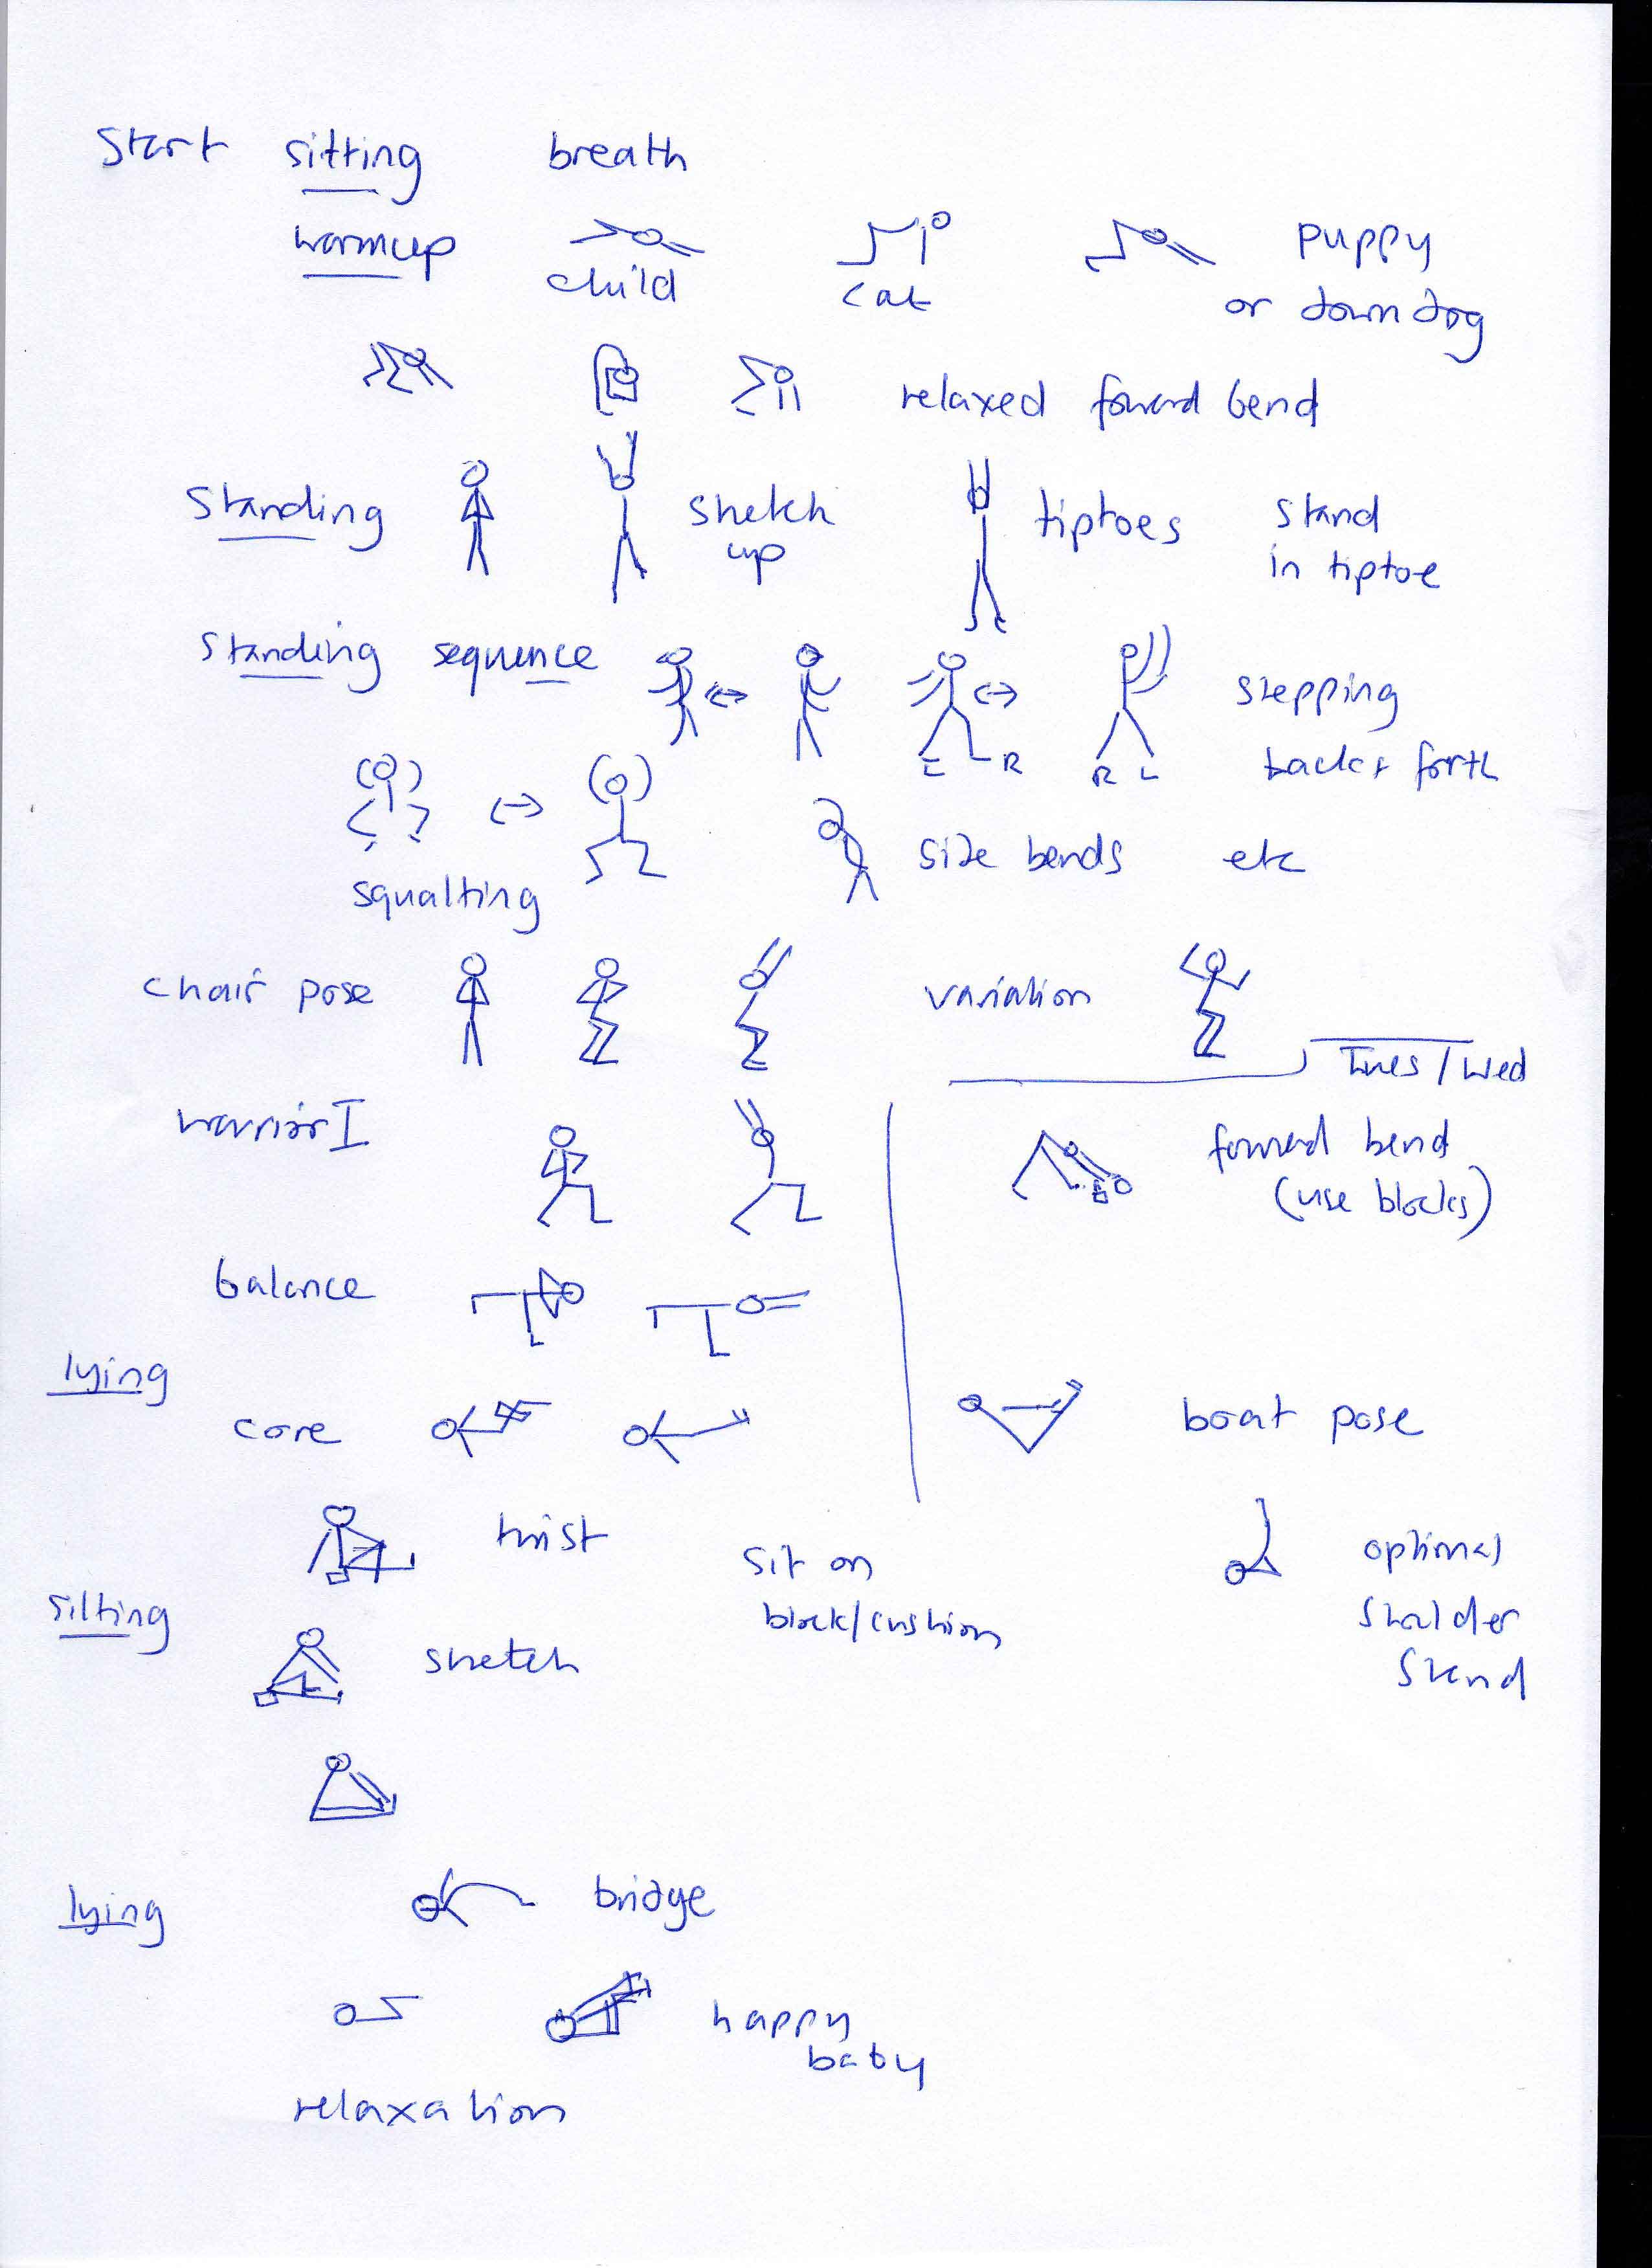 Start sitting breath
warmup
child cat puppy
or down dog
relaxed forward bend
Standing stretch up tiptoes stand
in tiptoe
Standing sequence stepping
back & forth
L R R L
squatting side bends etc
chair pose variation
Tues / Wed
warrior I forward bend
(use blocks)
balance
lying
core boat pose
twist sit on
block/cushion
optional
shoulder
stand
sitting
stretch
lying bridge
happy
baby
relaxation